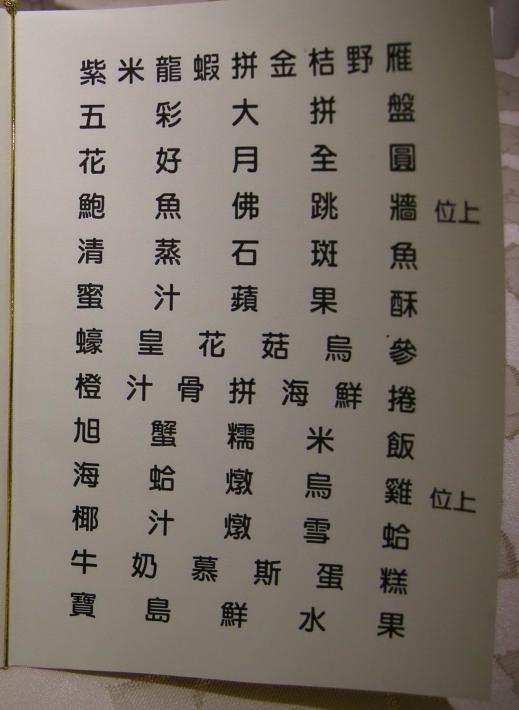 紫米龍蝦拼金桔野雁
五彩大拼盤
花好月全圓
鮑魚佛跳牆 位上
清蒸石斑魚
蜜汁蘋果酥
蠔皇花菇烏參
橙汁骨拼海鮮捲
旭蟹糯米飯
海蛤燉烏雞 位上
椰汁燉雪蛤
牛奶慕斯蛋糕
寶島鮮水果